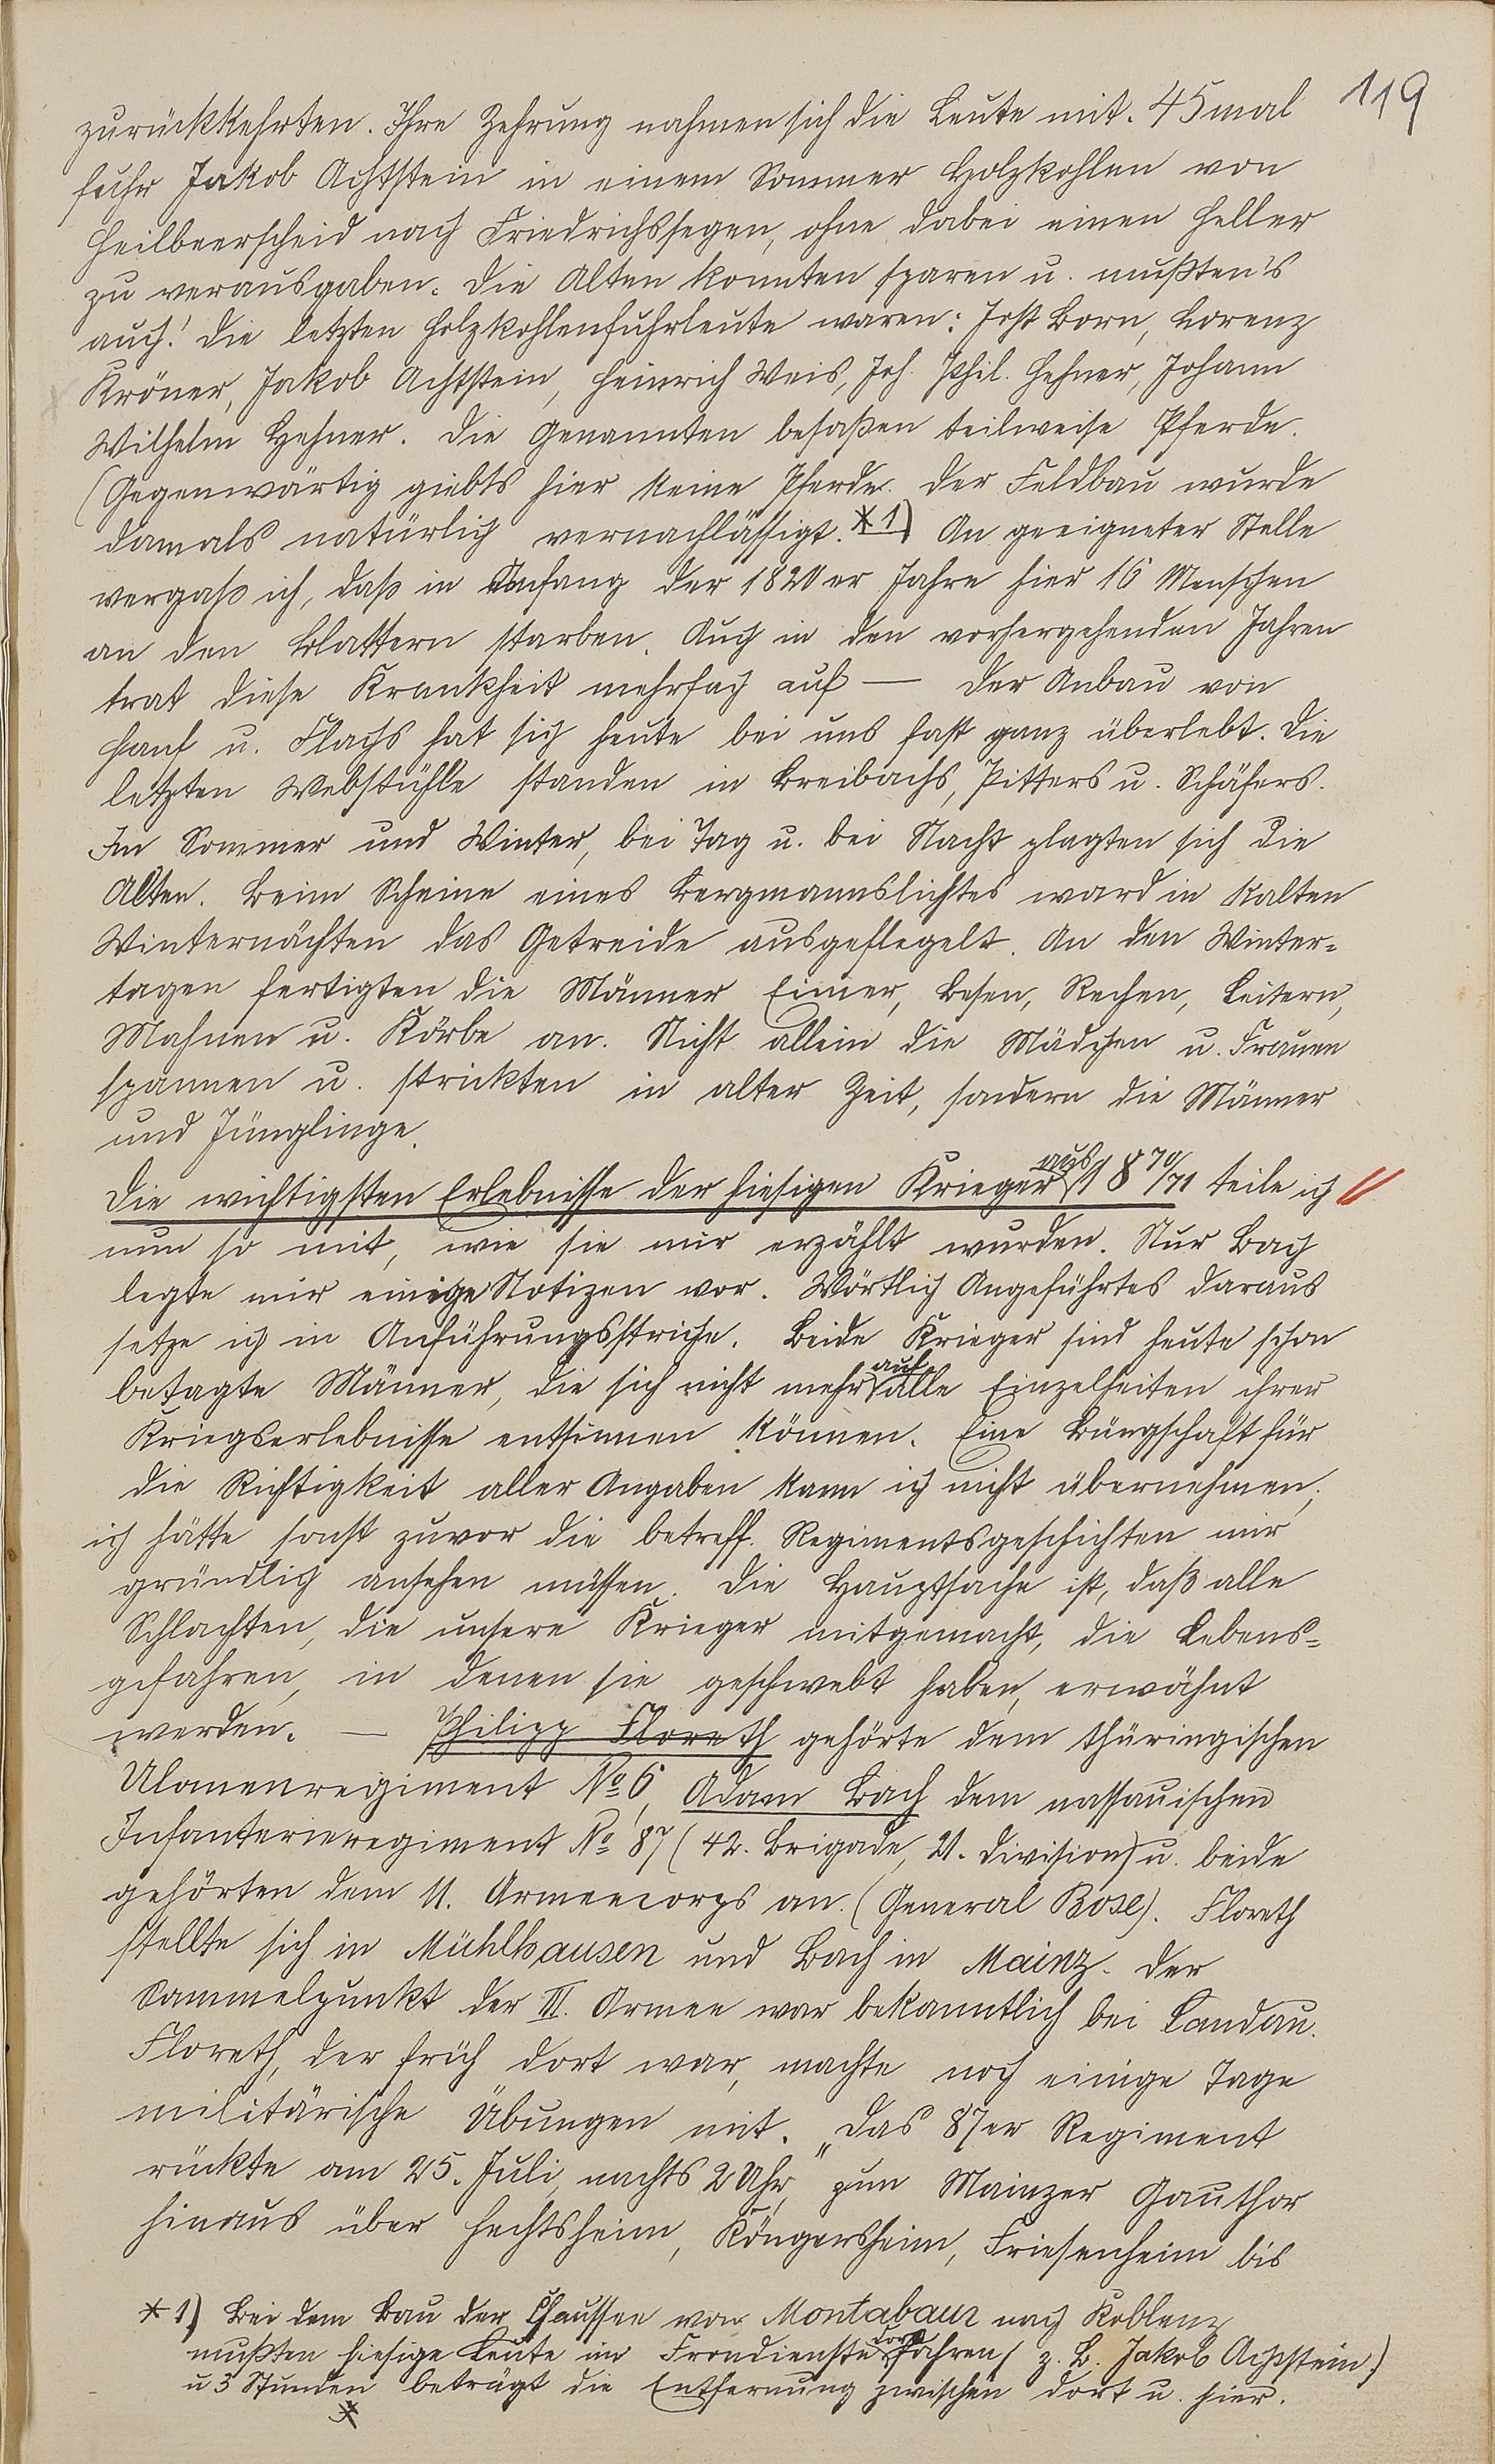 119
zurückkehrten. Ihre Zehrung nahmen sich die Leute mit. 45 mal
fuhr Jakob Achtstein in einem Sommer Holzkohlen von
Heilberscheid nach Friedrichssegen, ohne dabei einen Heller
zu verausgaben. Die Alten konnten sparen u. mußten's
auch! Die letzten Holzkohlenfuhrleute waren: Jost Born, Lorenz
Kröner, Jakob Achtstein, Heinrich Weis, Joh. Phil. Hehner, Johann
Wilhelm Hehner. Die Genannten besaßen teilweise Pferde.
(Gegenwärtig giebts hier keine Pferde. Der Feldbau wurde
damals natürlich vernachlässigt. *1) An geeigneter Stelle
vergaß ich, daß in Anfang der 1820er Jahre hier 16 Menschen
an den Blattern starben. Auch in den vorhergehenden Jahren
trat diese Krankheit mehrfach auf — Der Anbau von
Hanf u. Flachs hat sich heute bei uns fast ganz überlebt. Die
letzten Webstühle standen in Breibachs, Pitters u. Schäfers.
Im Sommer und Winter, bei Tag u. bei Nacht plagten sich die
Alten. Beim Scheine eines Bergmannslichtes ward in kalten
Winternächten das Getreide ausgeflegelt. An den Winter=
tagen fertigten die Männer Eimer, Besen, Rechen, Leitern,
Mahnen u. Körbe an. Nicht allein die Mädchen u. Frauen
spannen u. strickten in alter Zeit, sondern die Männer
und Jünglinge.
Die wichtigsten Erlebnisse der hiesigen Krieger aus 1870/71 teile ich
nun so mit, wie sie mir erzählt wurden. Nur Bach
legte mir einige Notizen vor. Wörtlich Angeführtes daraus
setze ich in Anführungsstriche. Beide Krieger sind heute schon
betagte Männer, die sich nicht mehr auf alle Einzelheiten ihrer
Kriegserlebnisse entsinnen können. Eine Bürgschaft für
die Richtigkeit aller Angaben kann ich nicht übernehmen;
ich hätte sonst zuvor die betreff. Regimentsgeschichten mir
gründlich ansehen müssen. Die Hauptsache ist, daß alle
Schlachten, die unsere Krieger mitgemacht, die Lebens=
gefahren, in denen sie geschwebt haben, erwähnt
werden. — Philipp Floreth gehörte dem thüringischen
Ulanenregiment No 6, Adam Bach dem nassauischen
Infanterieregiment No 87 (42. Brigade, 21. Division) u. beide
gehörten dem 11. Armeecorps an. (General Bose). Floreth
stellte sich in Mühlhausen und Bach in Mainz. Der
Sammelpunkt der III. Armee war bekanntlich bei Landau.
Floreth, der früh dort war, machte noch einige Tage
militärische Übungen mit. „Das 87er Regiment
rückte am 25. Juli, nachts 2 Uhr," zum Mainzer Gauthor
hinaus über Hechtsheim, Köngersheim, Friesenheim bis
*1) Bei dem Bau der Chaussee von Montabaur nach Koblenz
mußten hiesige Leute im Frondienste dort fahren (z. B. Jakob Achtstein.)
u 3 Stunden beträgt die Entfernung zwischen dort u. hier.
*